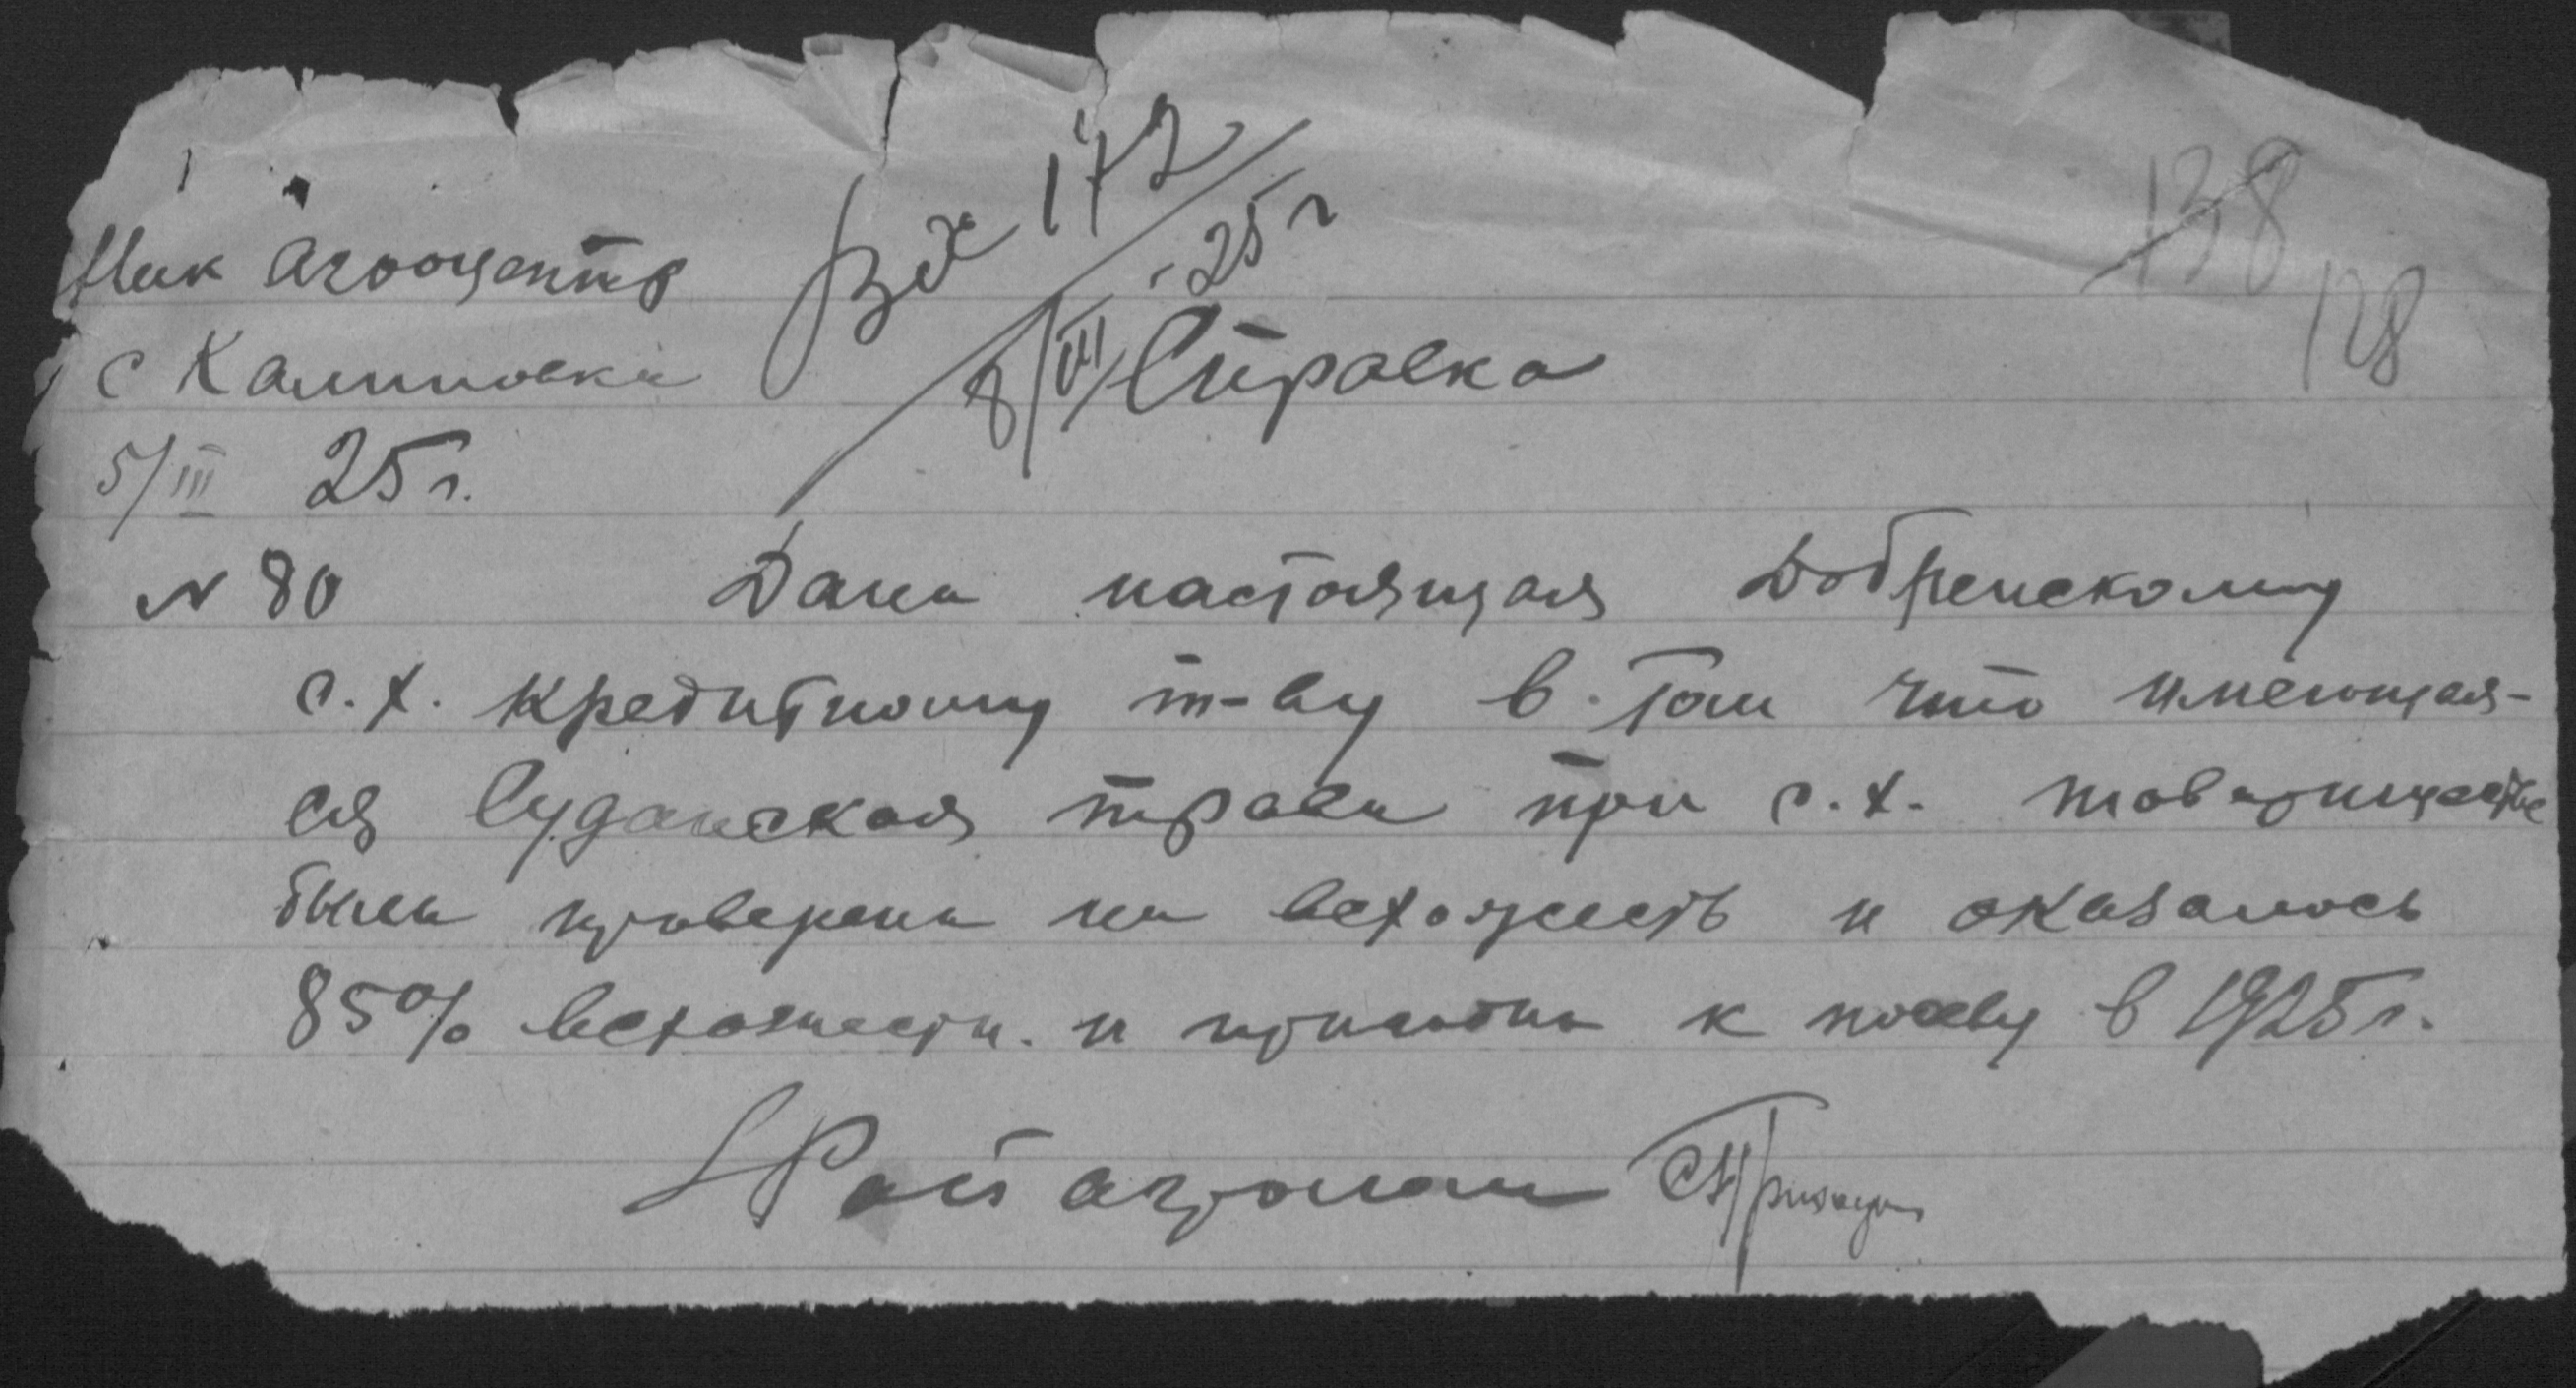 Ник агроцентр
с Калиновка
5/III 25 г.
N 80
Вх 172
8/III -25 г
138
128
Справка
Дана настоящая Добренскому
с.х. кредитному т-ву в том что имеющая-
ся Суданская трава при с.х. товариществе
была проверена на всхожесть и оказалось
85% всхожести. и пригодна к посеву в 1925 г.
Райагроном